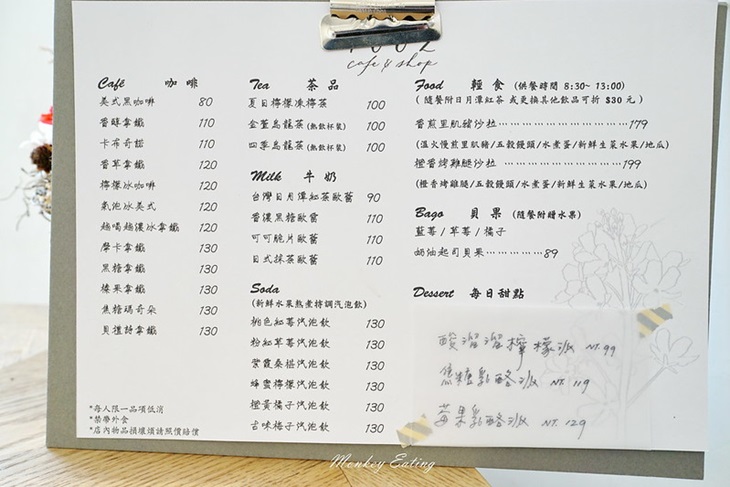 cafe & shop
Café 咖啡
美式黑咖啡 80
香醇拿鐵 110
卡布奇諾 110
香草拿鐵 120
檸檬冰咖啡 120
氣泡冰美式 120
越喝越濃冰拿鐵 120
摩卡拿鐵 130
黑糖拿鐵 130
榛果拿鐵 130
焦糖瑪奇朵 130
貝禮詩拿鐵 130
*每人限一品項低消
*禁帶外食
*店內物品損壞煩請照價賠償
Tea 茶品
夏日檸檬凍檸茶 100
金萱烏龍茶(熱飲杯裝) 100
四季烏龍茶(熱飲杯裝) 100
Milk 牛奶
台灣日月潭紅茶歐蕾 90
香濃黑糖歐蕾 110
可可脆片歐蕾 110
日式抹茶歐蕾 110
Soda
(新鮮水果熬煮特調汽泡飲)
桃色紅莓汽泡飲 130
粉紅草莓汽泡飲 130
紫霞桑椹汽泡飲 130
蜂蜜檸檬汽泡飲 130
橙黃橘子汽泡飲 130
古味梅子汽泡飲 130
Food 輕食 (供餐時間 8:30~ 13:00)
( 隨餐附日月潭紅茶 或更換其他飲品可折 $30 元 )
香煎里肌豬沙拉……………………179
(溫火慢煎里肌豬/五穀饅頭/水煮蛋/新鮮生菜水果/地瓜)
橙香烤雞腿沙拉……………………199
(橙香烤雞腿/五穀饅頭/水煮蛋/新鮮生菜水果/地瓜)
Bago 貝果 (隨餐附贈水果)
藍莓/草莓/橘子
奶油起司貝果……………89
Dessert 每日甜點
酸溜溜檸檬派 NT.99
焦糖乳酪派 NT.119
莓果乳酪派 NT.129
Monkey Eating